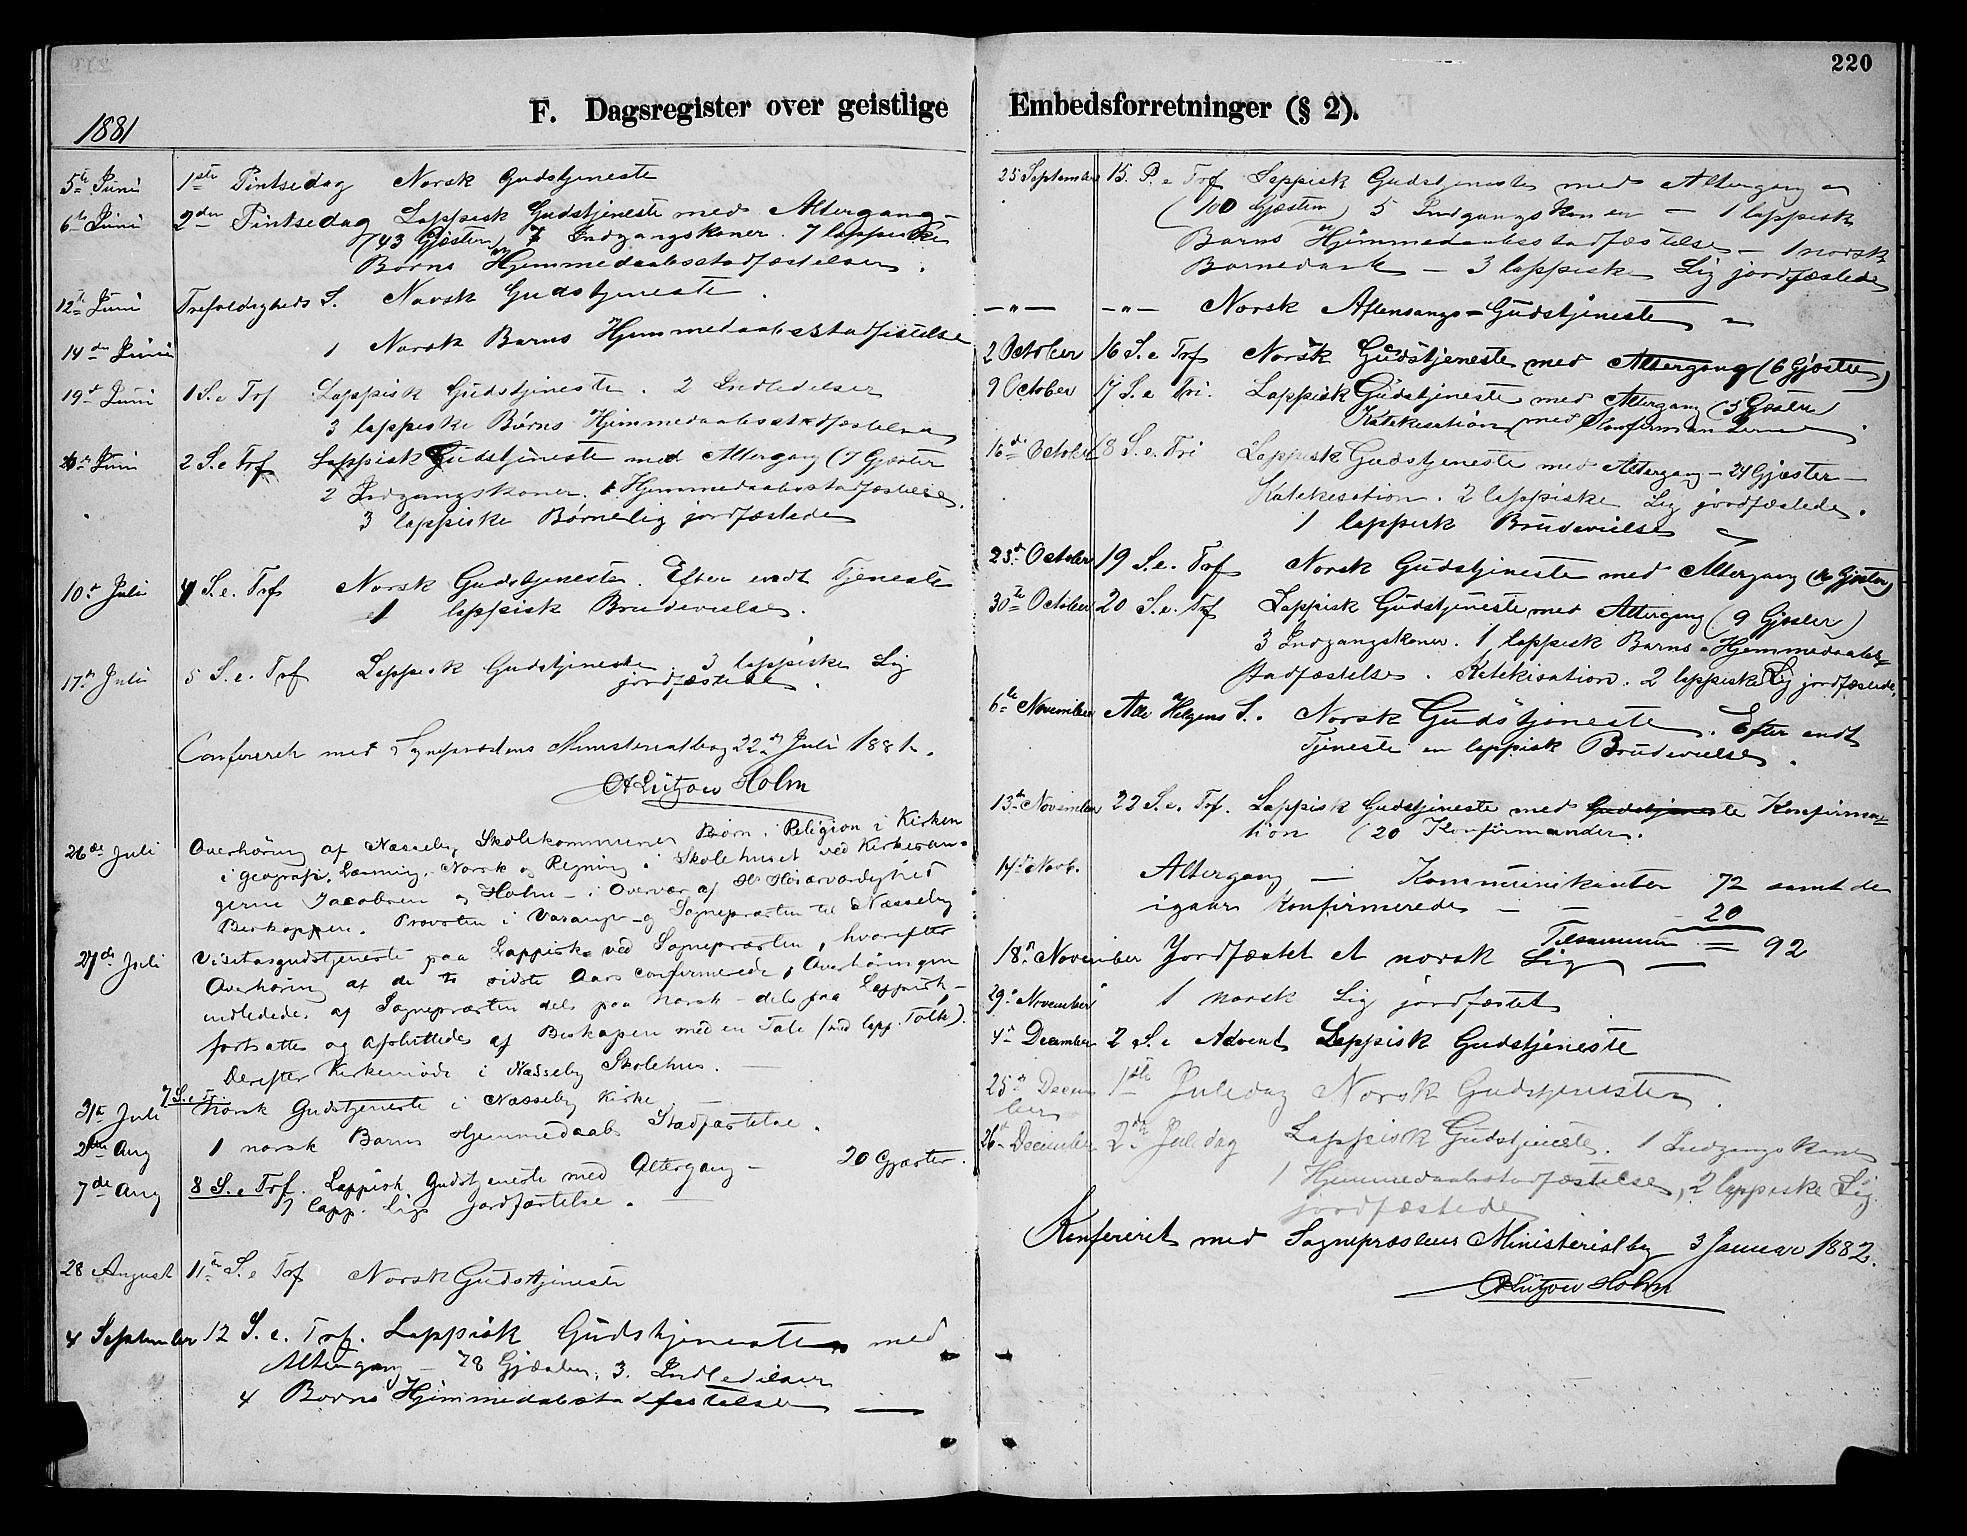 220
F. Dagsregister over geistlige Embedsforretninger (§ 2).
1881
5te Juni 1ste Pintsedag Norsk Gudstjeneste
6te Juni 2den Pintsedag Lappisk Gudstjeneste med Altergang –
(43 Gjester) 7 Indgangskoner. 7 lappiske
Børns Hjemmedaabsstadfæstelser.
12te Juni Trefoldigheds S. Norsk Gudstjeneste.
14de Juni 1 Norsk Barns Hjemmedaabsstadfæstelse
19de Juni 1 S. e Trf Lappisk Gudstjeneste. 2 Indledelser
3 lappiske Børns Hjemmedaabsstadfæstelser
26de Juni 2 S. e Trf Lappisk Gudstjeneste med Altergang (7 Gjæster
2 Indgangskoner. 1 Hjemmedaabsstadfæstelse.
3 lappiske Børnelig jordfæstede
10de Juli 4 S. e. Trf Norsk Gudstjeneste. Efter endt Tjeneste
1 lappisk Brudevielse.
17de Juli 5 S. e. Trf Lappisk Gudstjeneste. 3 lappiske Lig
jordfæstede.
Confereret med Sognepræstens Ministerialbog 22de Juli 1881.
A Lützow Holm
26de Juli Overhøring af Næsseby Skolekommunes Børn i Religion i Kirken
i Geografi, Læsning, Norsk og Regning i Skolehuset ved Kirkesan-
gerne Jacobsen og Holm – i Overvær af Hs Høiærværdighed
Biskoppen, Provsten i Varanger og Sognepræsten til Næsseby
27de Juli Visitasgudstjeneste paa Lappisk ved Sognepræsten, hvorefter
Overhøring af de to sidste Aars confirmerede, Overhøringen
indledede af Sognepræsten dels paa Norsk – dels paa Lappisk –
fortsattes og afsluttedes af Biskopen med en Tale (ved lapp. Tolk).
Derefter Kirkemøde i Næsseby Skolehus.
31te Juli 7 S. e. Tr. Norsk Gudstjeneste i Næsseby Kirke
2den Aug 1 norsk Barns Hjemmedaabs Stadfæstelse.
7de Aug 8 S. e Trf. Lappisk Gudstjeneste med Altergang – 20 Gjæster.
7 lapp. Ligs Jordfæstelse.
28 August 11te S. e Trf Norsk Gudstjeneste
4 September 12 S. e. Trf. Lappisk Gudstjeneste med
Altergang – 78 Gjæster, 3 Indledelser
4 Børns Hjemmedaabsstadfæstelse
25 September 15. S. e Trf Lappisk Gudstjeneste med Altergang –
(100 Gjæster) 5 Indgangskoner – 1 lappisk
Barns Hjemmedaabsstadfæstelse – 1 norsk
Barnedaab – 3 lappiske Lig jordfæstede
– " – – " – Norsk Aftensangs-Gudstjeneste
2 October 16 S. e Trf Norsk Gudstjeneste med Altergang (6 Gjæster)
9 October 17 S. e Tri. Lappisk Gudstjeneste med Altergang (3 Gjæster)
Katekesation med Konfirmanderne.
16de October 18 S. e. Tri Lappisk Gudstjeneste med Altergang – 24 Gjæster –
Katekesation. 2 lappiske Lig jordfæstede.
1 lappisk Brudevielse
23de October 19 S. e. Trf Norsk Gudstjeneste med Altergang ( Gjæster)
30te October 20 S. e. Trf Lappisk Gudstjeneste med Altergang (9 Gjæster)
3 Indgangskoner. 1 lappisk Barns Hjemmedaabs-
stadfæstelse. Katekisation. 2 lappiske Lig jordfæstede.
6te November Alle Helgens S. Norsk Gudstjeneste. Efter endt
Tjeneste en lappisk Brudevielse.
13de November 22 S. e. Trf. Lappisk Gudstjeneste med Gudstjeneste Konfirma-
tion (20 Konfirmander.
14de Novb. Altergang – Kommunikanter 72 samt de
igaar Konfirmerede – – 20
Tilsammen = 92
18de November Jordfæstet et norsk Lig
29de November 1 norsk Lig jordfæstet
4de December 2 S. e Advent Lappisk Gudstjeneste
25de Decem 1ste Juledag Norsk Gudstjeneste.
ber
26de December 2den Juledag Lappisk Gudstjeneste. 1 Indgangskone
1 Hjemmedaabsstadfæstelse, 2 lappiske Lig
jordfæstede
Konfereret med Sognepræstens Ministerialbog 3 Januar 1882.
A Lützow Holm